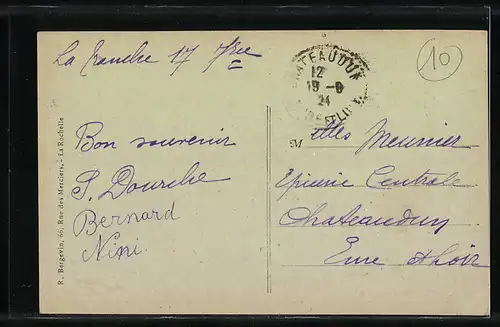 La Tranche 17
10
CHATEAUDUN
12
19 -9
24
EURE-ET-LOIR
Bon souvenir
Bernard
Nini.
Meunier
Epicerie Centrale
Chateaudun
Eure & Loir
R. Bergevin, 66, Rue des Merciers, - La Rochelle